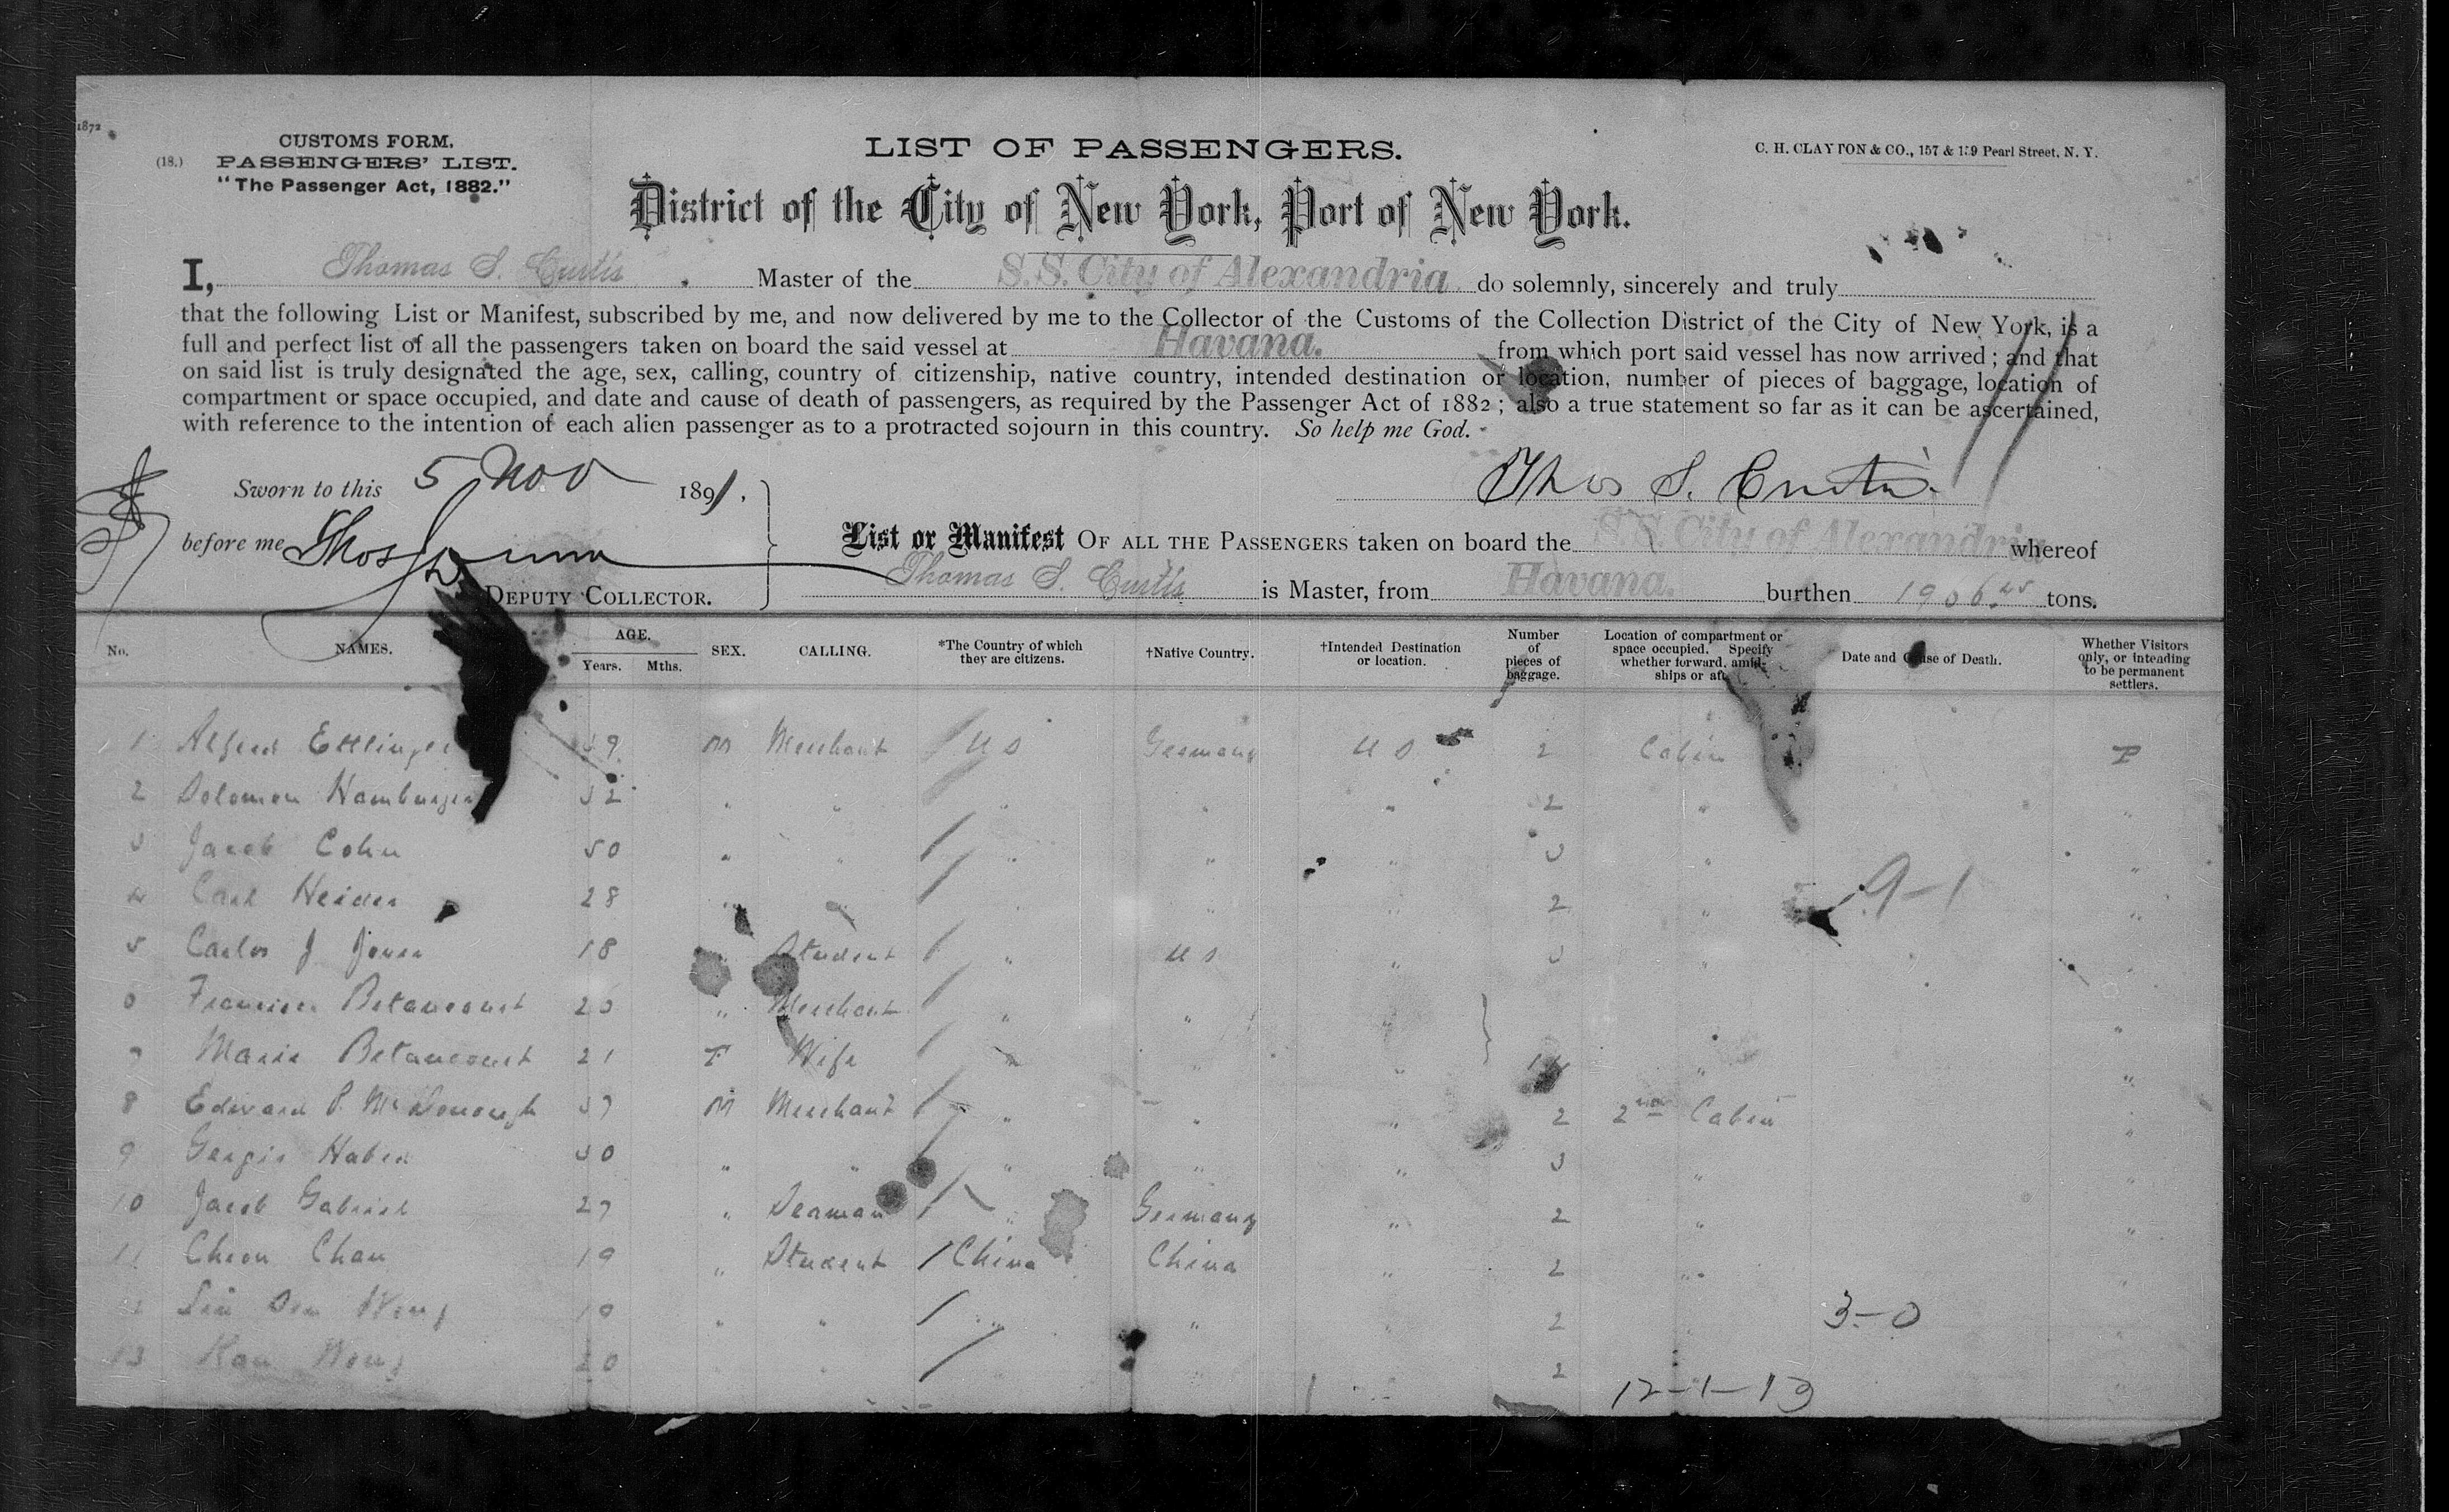 1872
CUSTOMS FORM.
(18.) PASSENGERS' LIST.
"The Passenger Act, 1882."
LIST OF PASSENGERS.
C. H. CLAYTON & CO., 157 & 159 Pearl Street, N. Y.
District of the City of New York, Port of New York.
I, Thomas S. Curtis Master of the S.S. City of Alexandria do solemnly, sincerely and truly
that the following List or Manifest, subscribed by me, and now delivered by me to the Collector of the Customs of the Collection District of the City of New York, is a
full and perfect list of all the passengers taken on board the said vessel at Havana. from which port said vessel has now arrived; and that
on said list is truly designated the age, sex, calling, country of citizenship, native country, intended destination or location, number of pieces of baggage, location of
compartment or space occupied, and date and cause of death of passengers, as required by the Passenger Act of 1882; also a true statement so far as it can be ascertained,
with reference to the intention of each alien passenger as to a protracted sojourn in this country. So help me God.
Sworn to this 5 Nov 1891.
Thos S. Curtis
before me Thos
DEPUTY COLLECTOR.
List or Manifest OF ALL THE PASSENGERS taken on board the S.S. City of Alexandria whereof
Thomas S. Curtis is Master, from Havana. burthen 1906.25 tons.
No. NAMES. AGE. Years. Mths. SEX. CALLING. *The Country of which they are citizens. †Native Country. †Intended Destination or location. Number of pieces of baggage. Location of compartment or space occupied. Specify whether forward, amidships or aft. Date and Cause of Death. Whether Visitors only, or intending to be permanent settlers.
1 Alfred Ettlinger 39 M Merchant U S Germany U S 2 Cabin P
2 Solomon Hamburger 32 " " " " " 2 " "
3 Jacob Cohn 50 " " " " " 3 " "
4 Carl Heider 28 " " " " " 2 " "
9-1
5 Carlos J Jones 18 " Student " U S " 3 " "
6 Francisco Betancourt 26 " Merchant " " " " "
7 Maria Betancourt 21 F Wife " " " " "
8 Edward P. McDonough 37 M Merchant " " " 2 2nd Cabin "
9 Gergis Haber 30 " " " " " 3 " "
10 Jacob Gabriel 27 " Seaman " Germany " 2 " "
11 Cheon Chan 19 " Student China China " 2 " "
12 Wong 19 " " " " " 2 "
3-0
13 Kan Wong 20 " " " " " 2
12-1-13